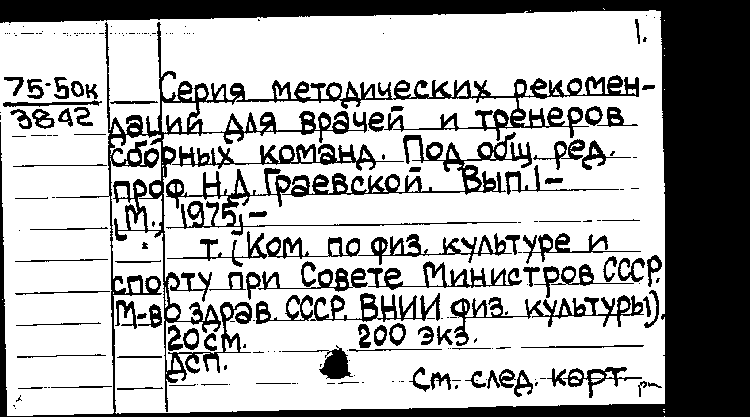 1.
75-50к
3842
Серия методических рекомен-
даций для врачей и тренеров
сборных команд. Под общ. ред.
проф. Н.Д. Граевской. Вып. 1-
[М., 1975,-
т. (Ком. по физ. культуре и
спорту при Совете Министров СССР.
М-во здрав. СССР. ВНИИ физ. культуры).
20 см. 200 экз.
Дсп.
См. след. карт.